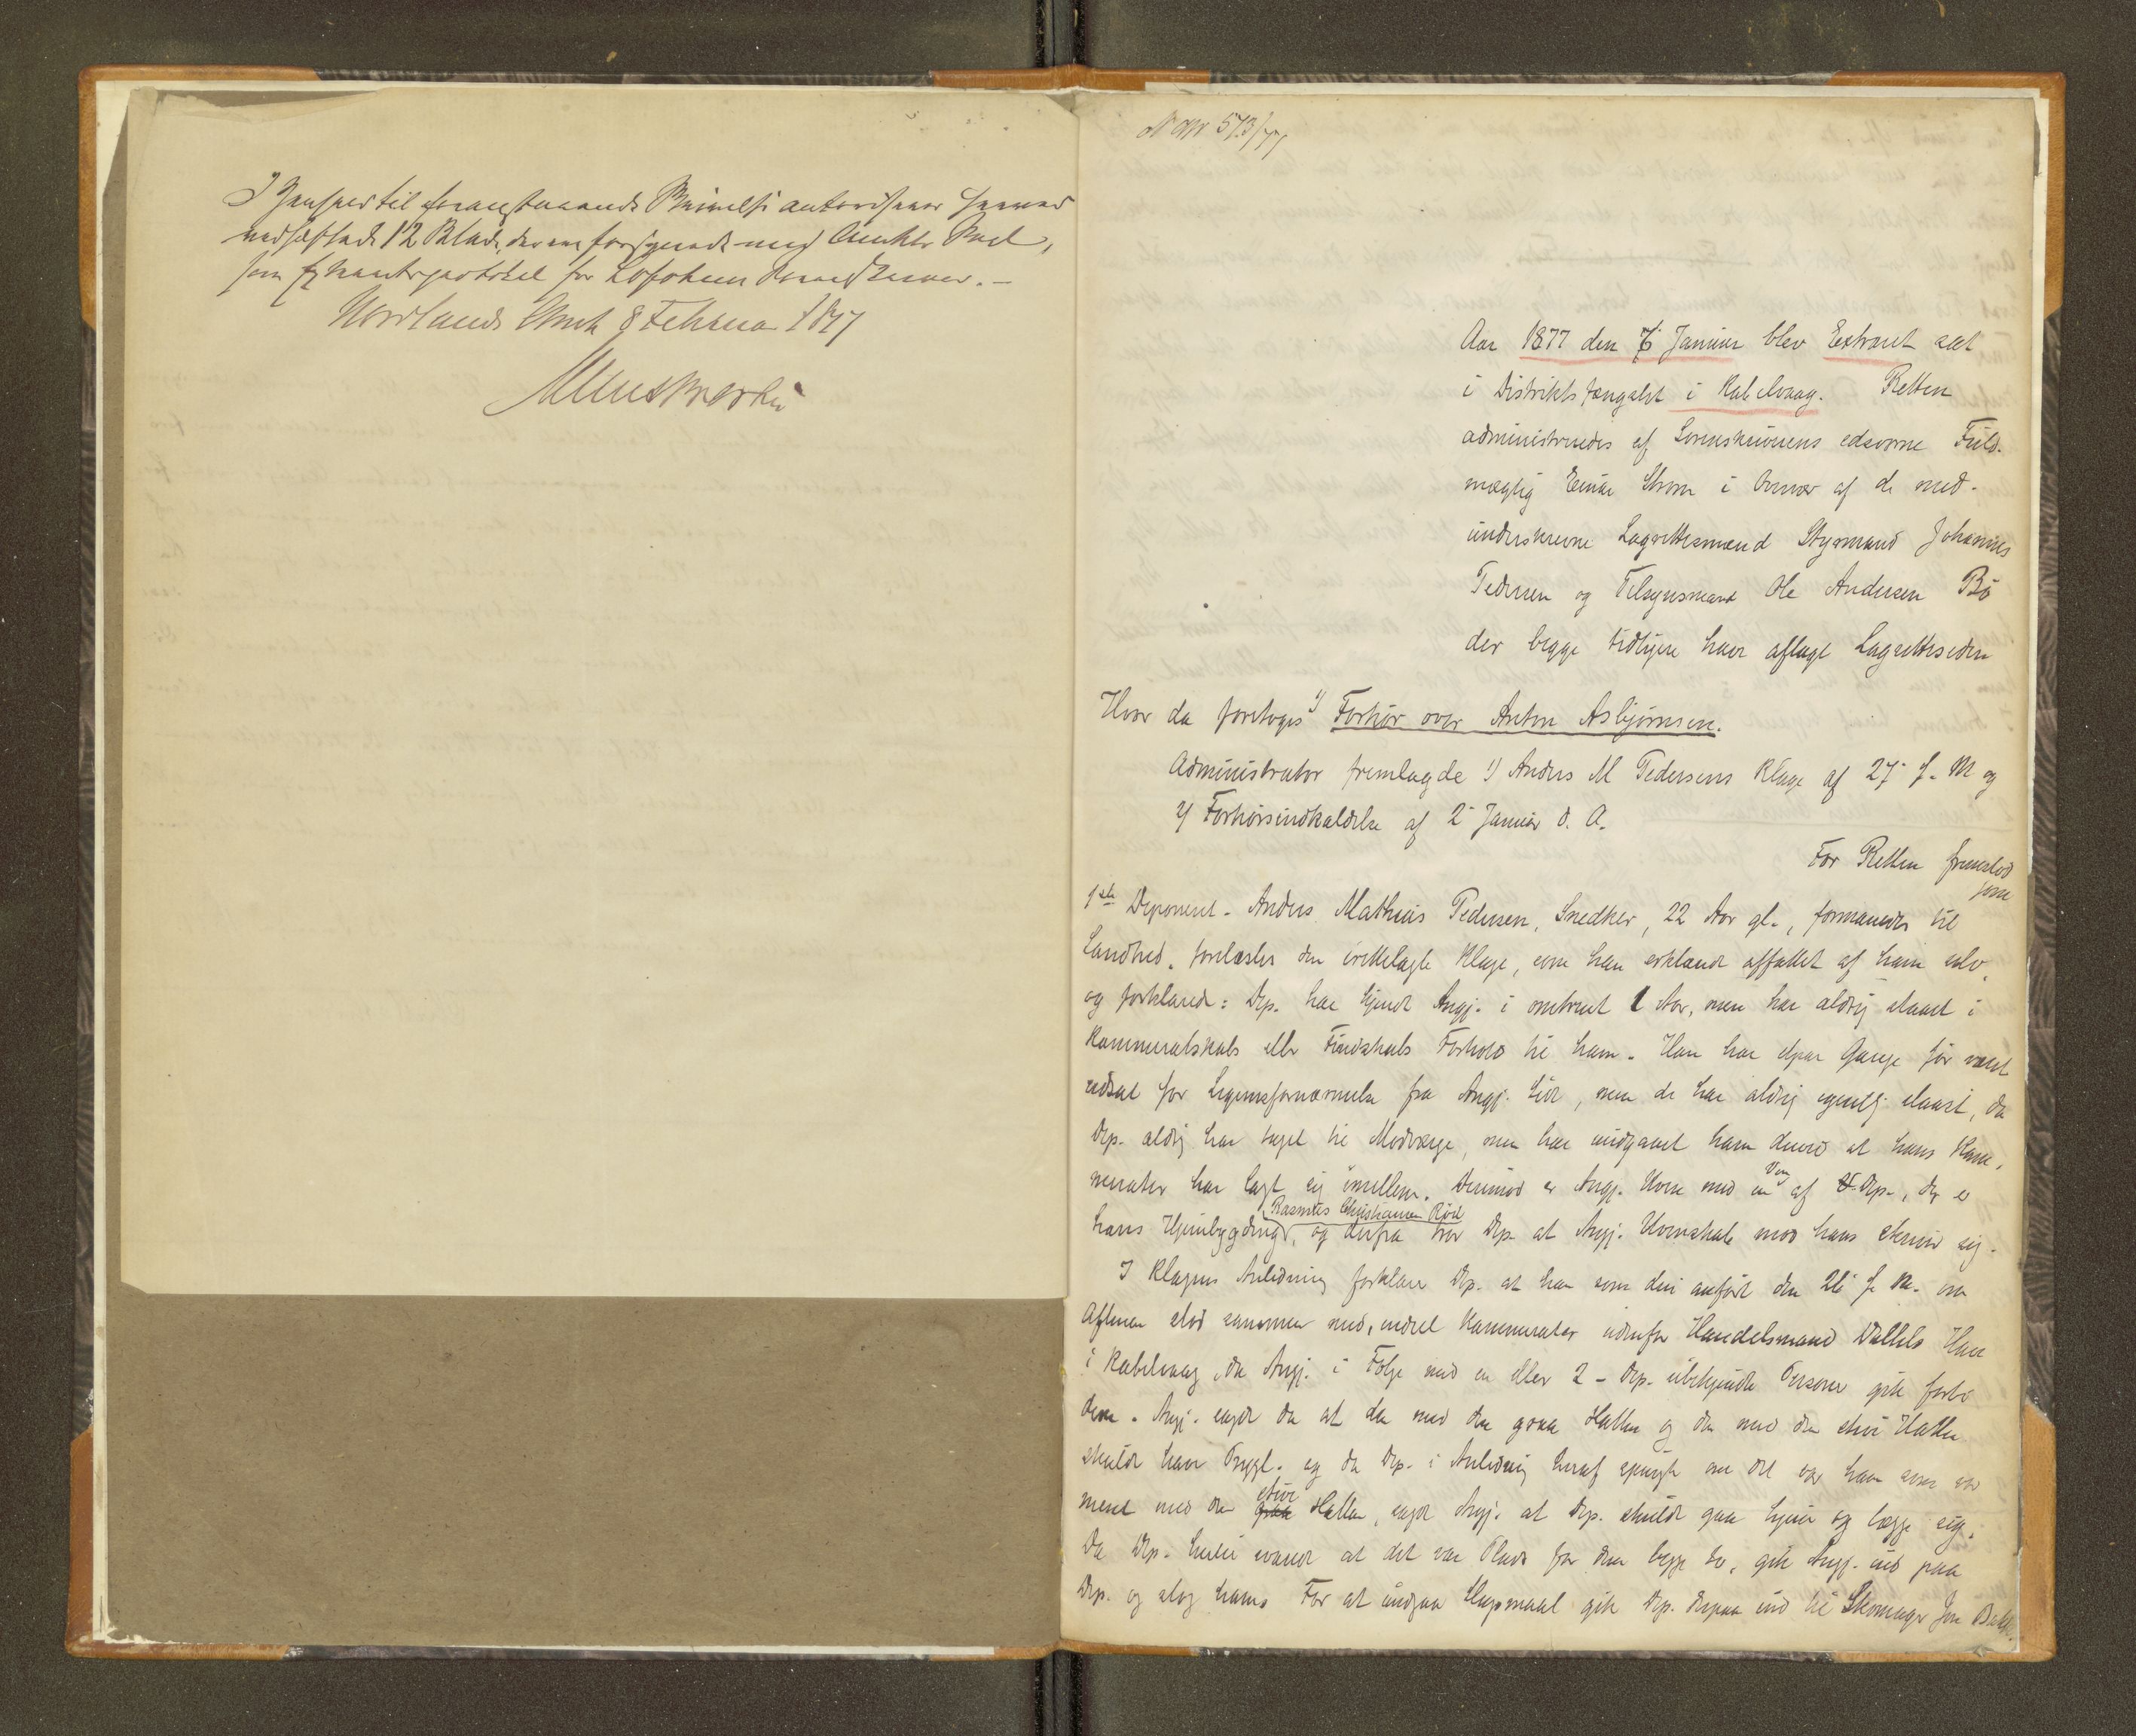 I Henhold til foranstaaende Bevilgelse autoriseres hermed
vedheftede 12 Blade, der ere forsynede med Amtets Segl,
som Extraretsprotokol for Lofotens Sorenskriver. –
Nordlands Amt 8 Februar 1877
N apr 573/77
Aar 1877 den 6 Januar blev Extraret sat
i Distriktsfængslet i Kabelvaag. Retten
administreredes af Sorenskriverens edsvorne Fuld-
mægtig Einar Strøm i Overvær af de med-
underskrevne Lagrettesmænd Styrmand Johannes
Pedersen og Tilsynsmand Ole Andersen Bö
der begge tidligere have aflagt Lagretteseden
Hvor da foretoges 1) Forhør over Anton Asbjørnsen.
Administrator fremlagde 1) Anders M Pedersens Klage af 27 f. M og
2) Forhørsindkaldelse af 2 Januar d. A.
For Retten fremstod
som
1ste Deponent - Anders Mathias Pedersen, Snedker, 22 Aar gl., formanedes til
Sandhed, forelæstes den irettelagte Klage, som han erklærede affattet af ham selv,
og forklarede: Dep. har kjendt Angj. i omtrent 1 Aar, men har aldrig staaet i
Kammeratskabs eller Fiendskabs Forhold til ham. Han har et par Gange før været
udsat for Legemsfornærmelse fra Angj. Side, men de har aldrig egentlig slaaet, da
Dep. aldrig har taget til Modværge, men har undgaaet ham derved at hans Kam-
merater har lagt sig imellem. Derimod er Angj. Uven med en Ven af Dep., der er
hans Hjembygding, Rasmus Christiansen Röd og derfra tror Dep. at Angj. Uvenskab mod ham skriver sig.
I Klagens Anledning forklarer Dep. at han som deri anført den 26 f. M. om
Aftenen stod sammen med endel Kammerater udenfor Handelsmand Hus
i Kabelvaag, da Angj. i Følge med en eller 2 - Dep. ubekjendte Personer gik forbi
dem. Angj. sagde da at den med den graa Hatten og den med den stive Hatten
skulde have Prygl. og da Dep. i Anledning heraf spurgte om det var ham som var
ment med den graa stive Hatten, sagde Angj. at Dep. skulde gaa hjem og lægge sig.
Da Dep. hertil svarede at det var Plads for dem begge to, gik Angj. ind paa
Dep. og slog ham. For at undgaa Slagsmaal gik Dep. derpaa ind til Skomager Jon